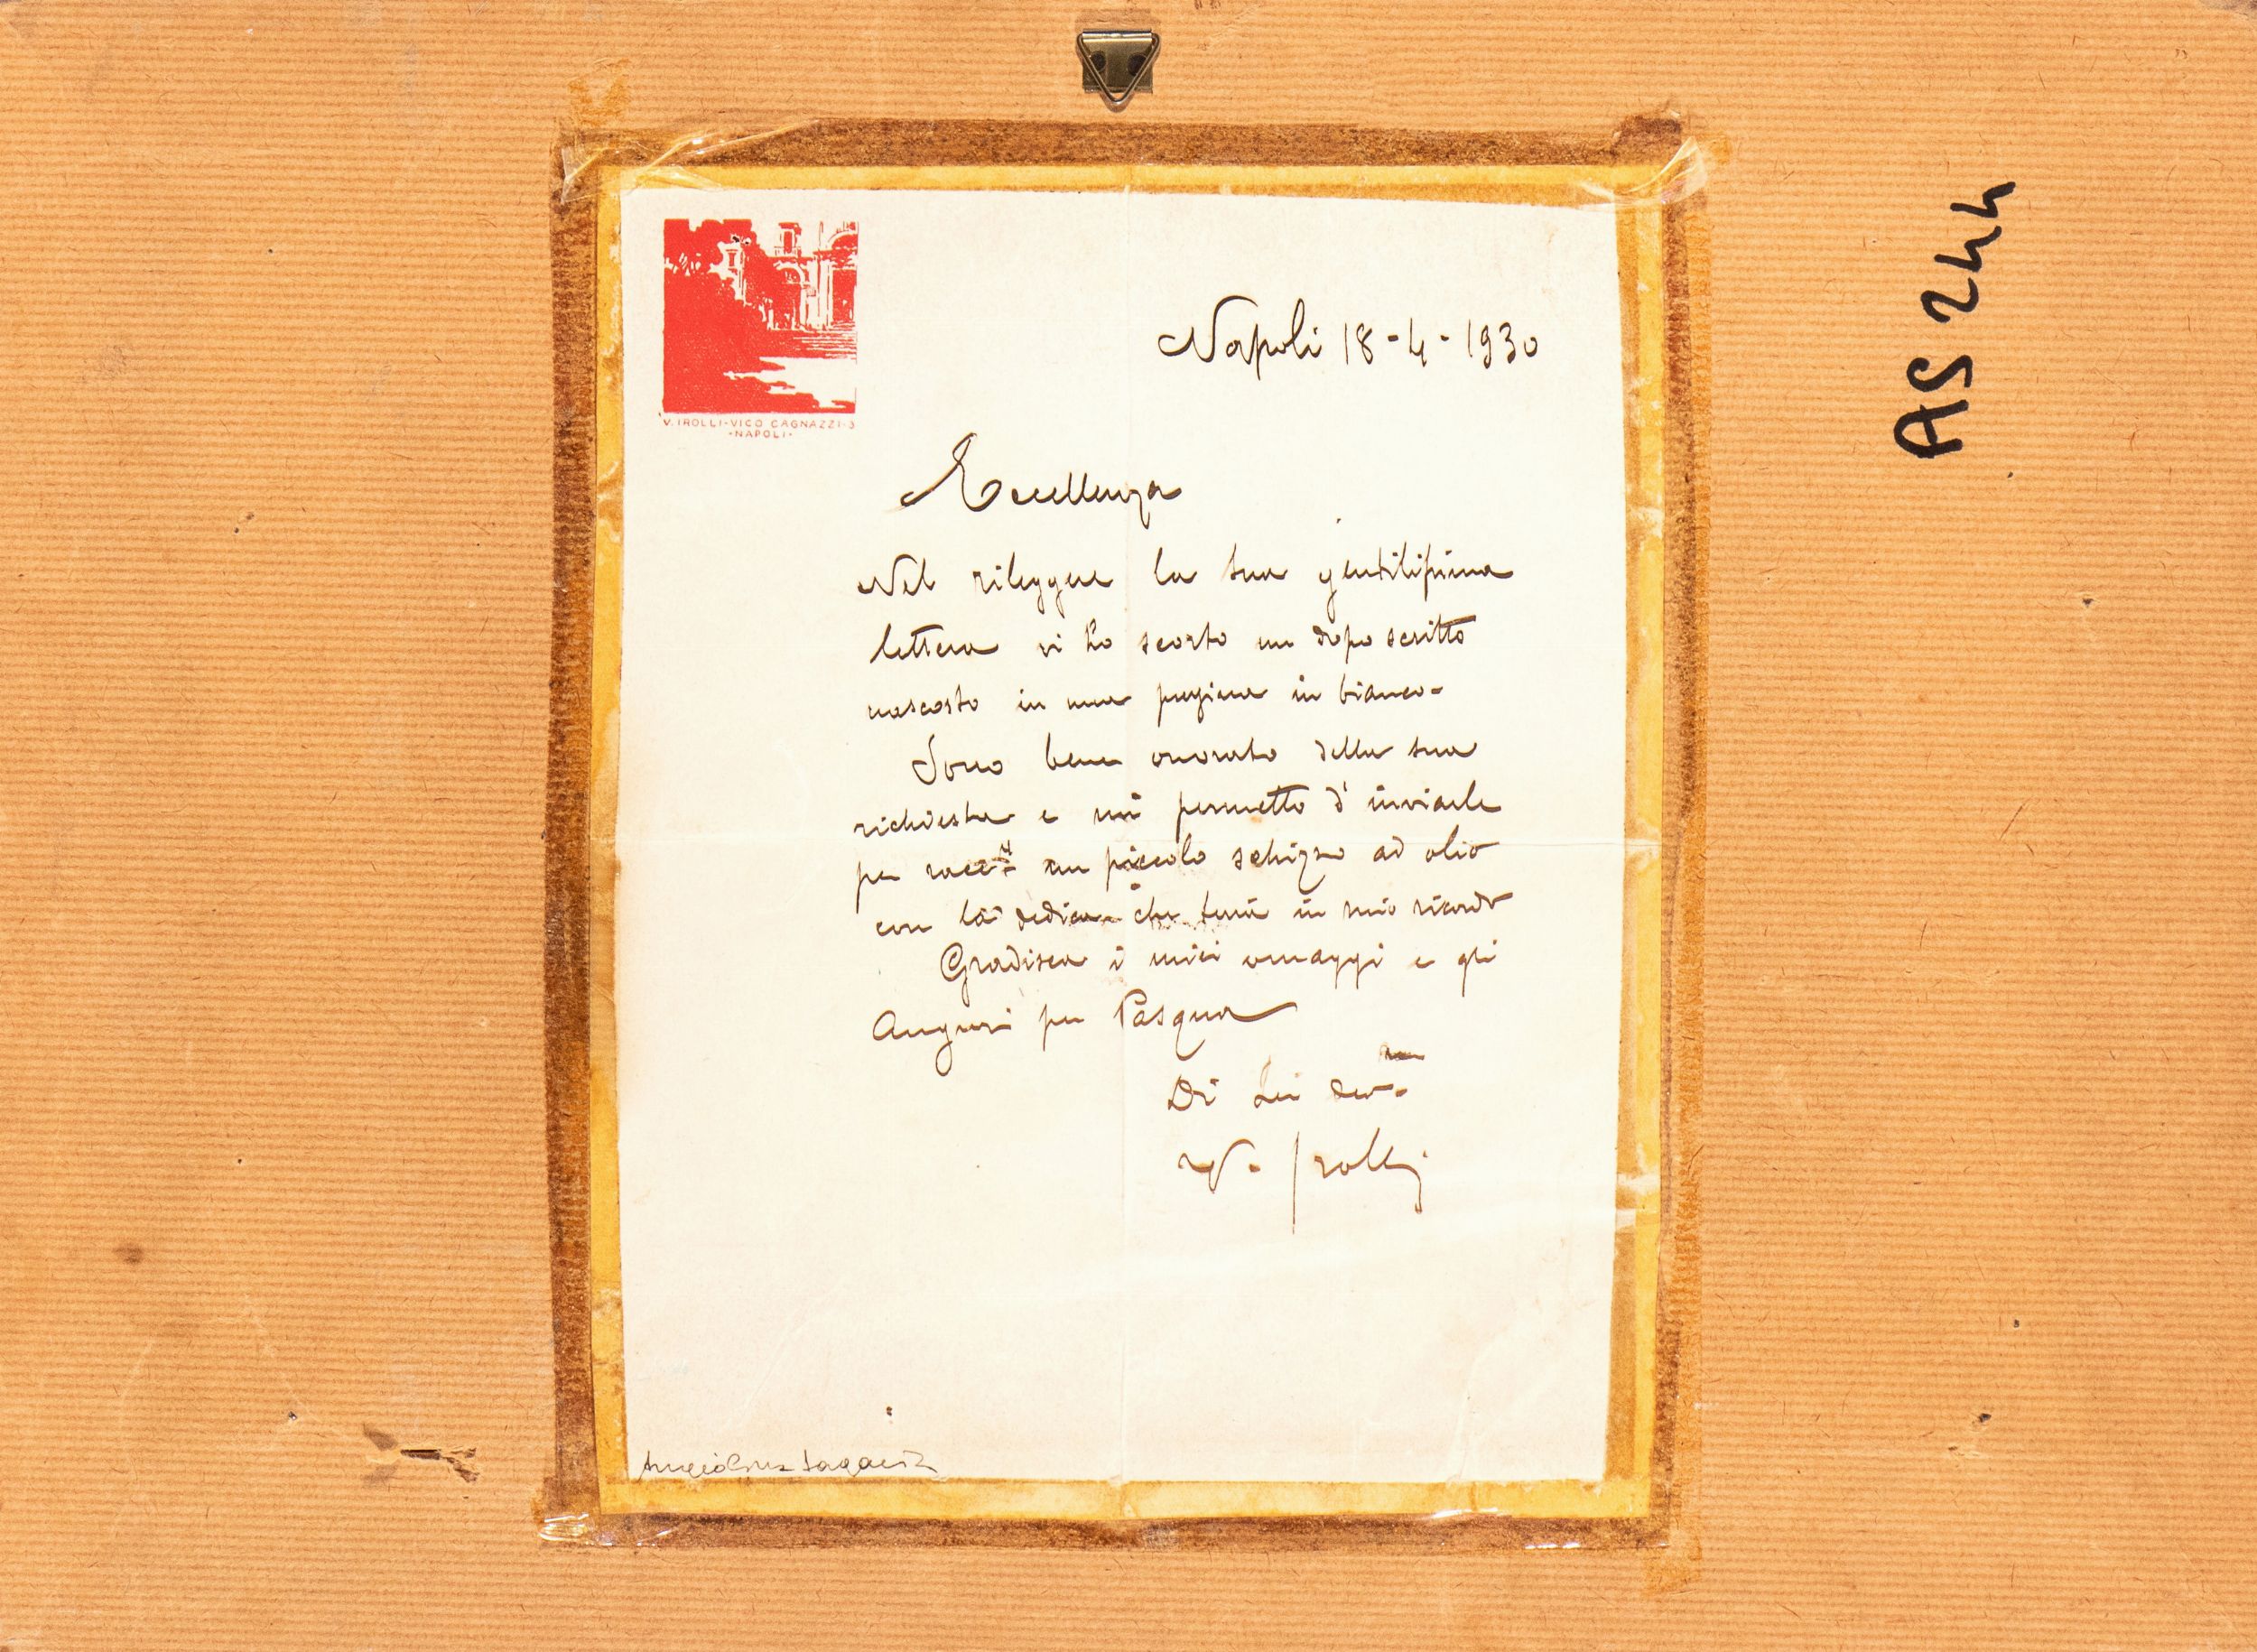 V. IROLLI-VICO CAGNAZZI-3
-NAPOLI-
Napoli 18-4-1930
Eccellenza
Nel rileggere la sua gentilissima
lettera vi ho scorto un dopo scritto
nascosto in una pagina in bianco-
Sono bene onorato della sua
richiesta e mi permetto d'inviarle
per un piccolo schizzo ad olio
con la dedica che terrà in mio ricordo
Gradisca i miei omaggi e gli
Auguri per Pasqua
Di Lei dev.mo
V. Irolli
AS 244